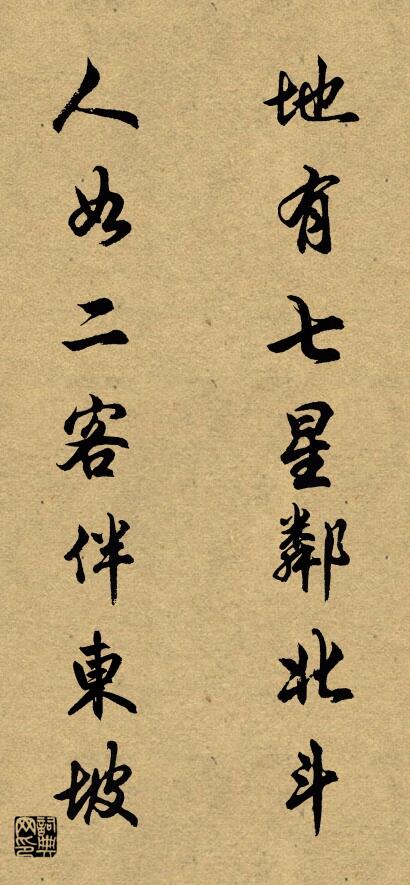 地有七星鄰北斗
人如二客伴東坡
詞典网印